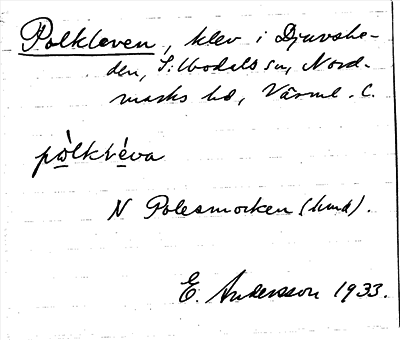 Polkleven, klev i Djuvshe-
den, Silbodals sn, Nord-
marks hd, Värml. C.
pòlkléva
N Polesmorken (hmd).
E. Andersson 1933.